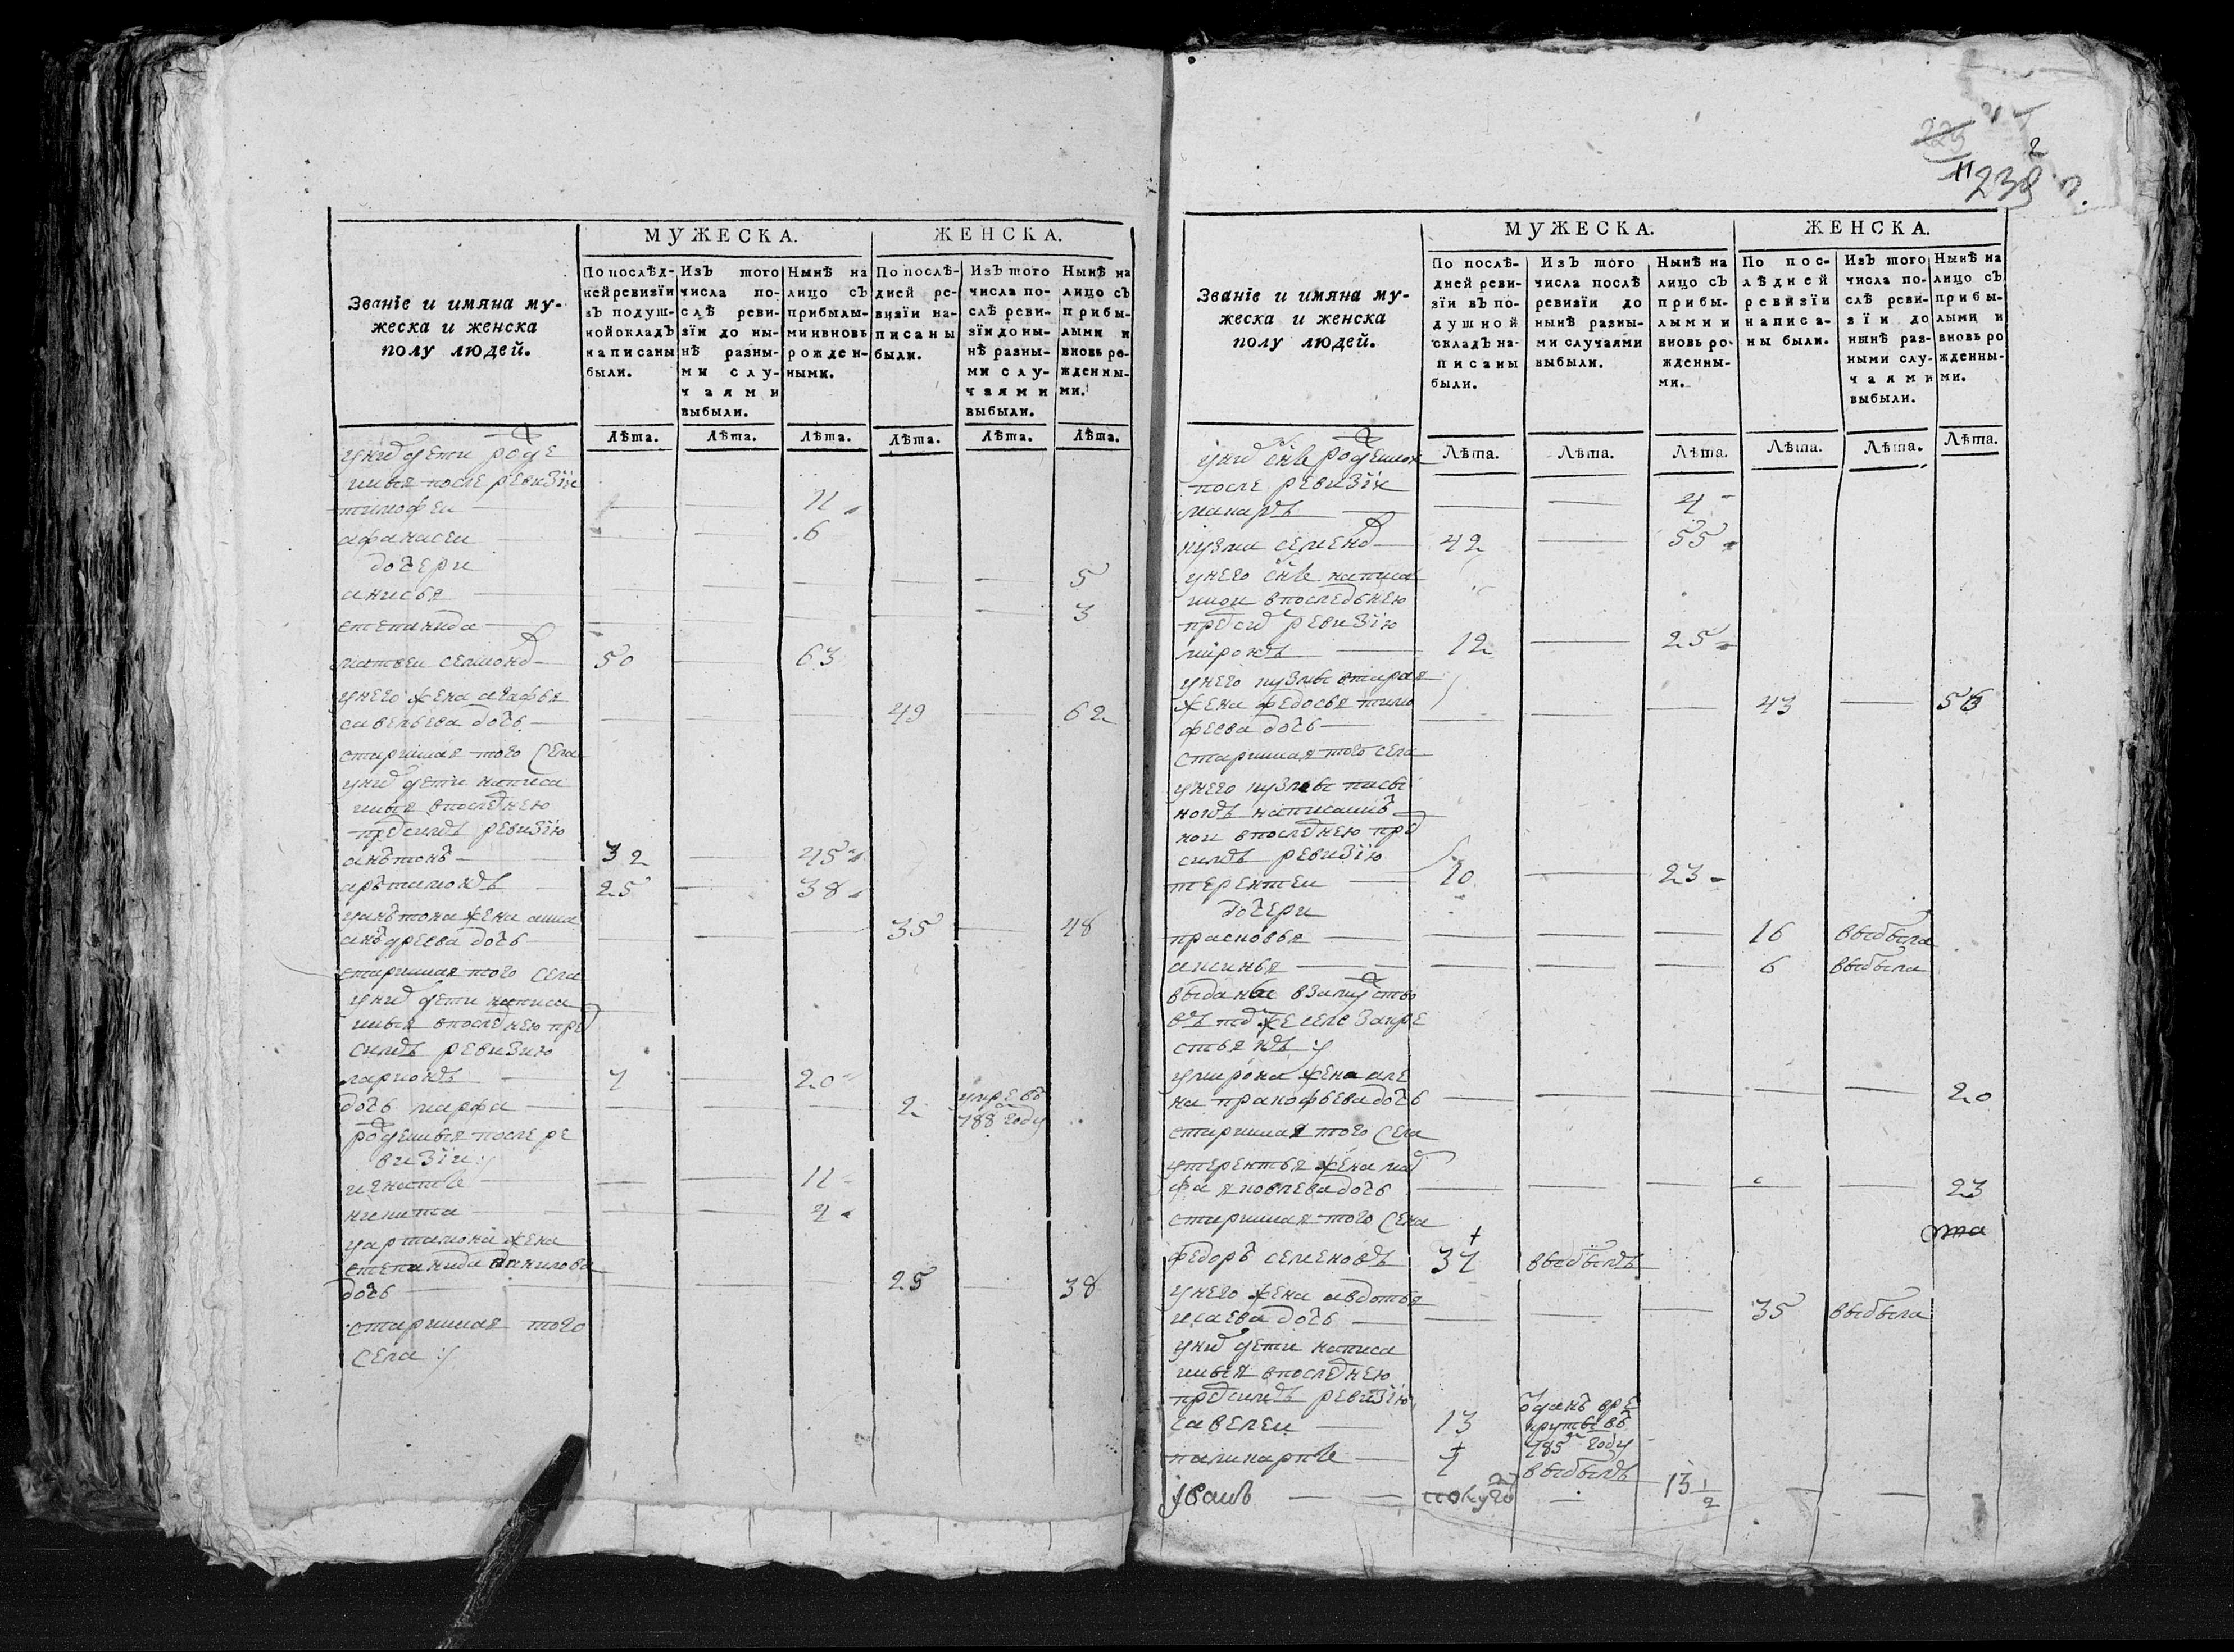 МУЖЕСКА.
ЖЕНСКА.
Званіе и имяна му-
жеска и женска
полу людей.
По послѣд-
ней ревизіи
въ подуш-
ной окладъ
написаны
были.
Изъ того
числа по-
слѣ реви-
зіи до ны-
нѣ разны-
ми слу-
чаями
выбыли.
Нынѣ на
лицо съ
прибылы-
ми и вновь
рожден-
ными.
По послѣ-
дней ре-
визіи на-
писаны
были.
Изъ того
числа по-
слѣ реви-
зіи до ны-
нѣ разны-
ми слу-
чаями
выбыли.
Нынѣ на
лицо съ
прибы-
лыми и
вновь ро-
жденны-
ми.
Лѣта. Лѣта. Лѣта. Лѣта. Лѣта. Лѣта.
уних дети роже
ныя после ревизіи
тимофеи — — — 11
афанасеи — — — 6
дочери
анисья — — — — — 5
степанида — — — — — 3
матвеи семонов 50 — 63
унего жена агафья
савельева дочь — — — 49 — 62
старинная того села
уних дети написа
ныя впоследнею
пред сим ревизію
анътонъ — 32 — 45
арътамонъ — 25 — 38
уанътона жена анна
анъдреева дочь — — — 35 — 48
старинная того села
уних дети написа
ныя впоследнею пред
симъ ревизию
ларионъ — 7 — 20
дочь марфа — — — 2 умре въ
788 году
рожденыя после ре
визіи :/
игнатеи — — — 11
никита — — — 4
уартамона жена
степанида данилова
дочь — — — 25 — 38
старинная того
села :/
223
238
МУЖЕСКА.
ЖЕНСКА.
Званіе и имяна му-
жеска и женска
полу людей.
По послѣ-
дней реви-
зіи въ по-
душной
окладъ на-
писаны
были.
Изъ того
числа послѣ
ревизіи до
нынѣ разны-
ми случаями
выбыли.
Нынѣ на
лицо съ
прибы-
лыми и
вновь ро-
жденны-
ми.
По пос-
лѣдней
ревизіи
написа-
ны были.
Изъ того
числа по-
слѣ реви-
зіи до
нынѣ раз-
ными слу-
чаями
выбыли.
Нынѣ на
лицо съ
прибы-
лыми и
вновь ро
жденны-
ми.
Лѣта. Лѣта. Лѣта. Лѣта. Лѣта. Лѣта.
уних снъ рожденои
после ревизіи
макаръ — — — 4
кузма семенов — 42 — 55
унего снъ написа
нои впоследьнею
пред сим ревизію
миронъ — 12 — 25
унего кузмы вторая
жена федосья тимо
феева дочь — — — 43 — 56
старинная того села
унего кузмы пасы
нокъ написанъ
нои впоследнею пред
симъ ревизию
терентеи — 10 — 23
дочери
прасковья — — — 16 выбыла
аксинья — — — 6 выбыла
выданы взамужство
въ том же селе за кре
стьянъ :/
умирона жена еле
на пракофьева дочь — — — — — 20
старинная того села
утерентья жена мар
фа яковлева дочь — — — — — 23
старинная того села
федоръ семеновъ 37 выбылъ
унего жена авдотья
исаева дочь — — — 35 выбыла
уних дети написа
ныя впоследнею
пред симъ ревизію
савелеи — 13 отданъ вре
круты въ
785м году
паликарпъ — 7 выбылъ
Иванъ — — — 13 1/2 — —